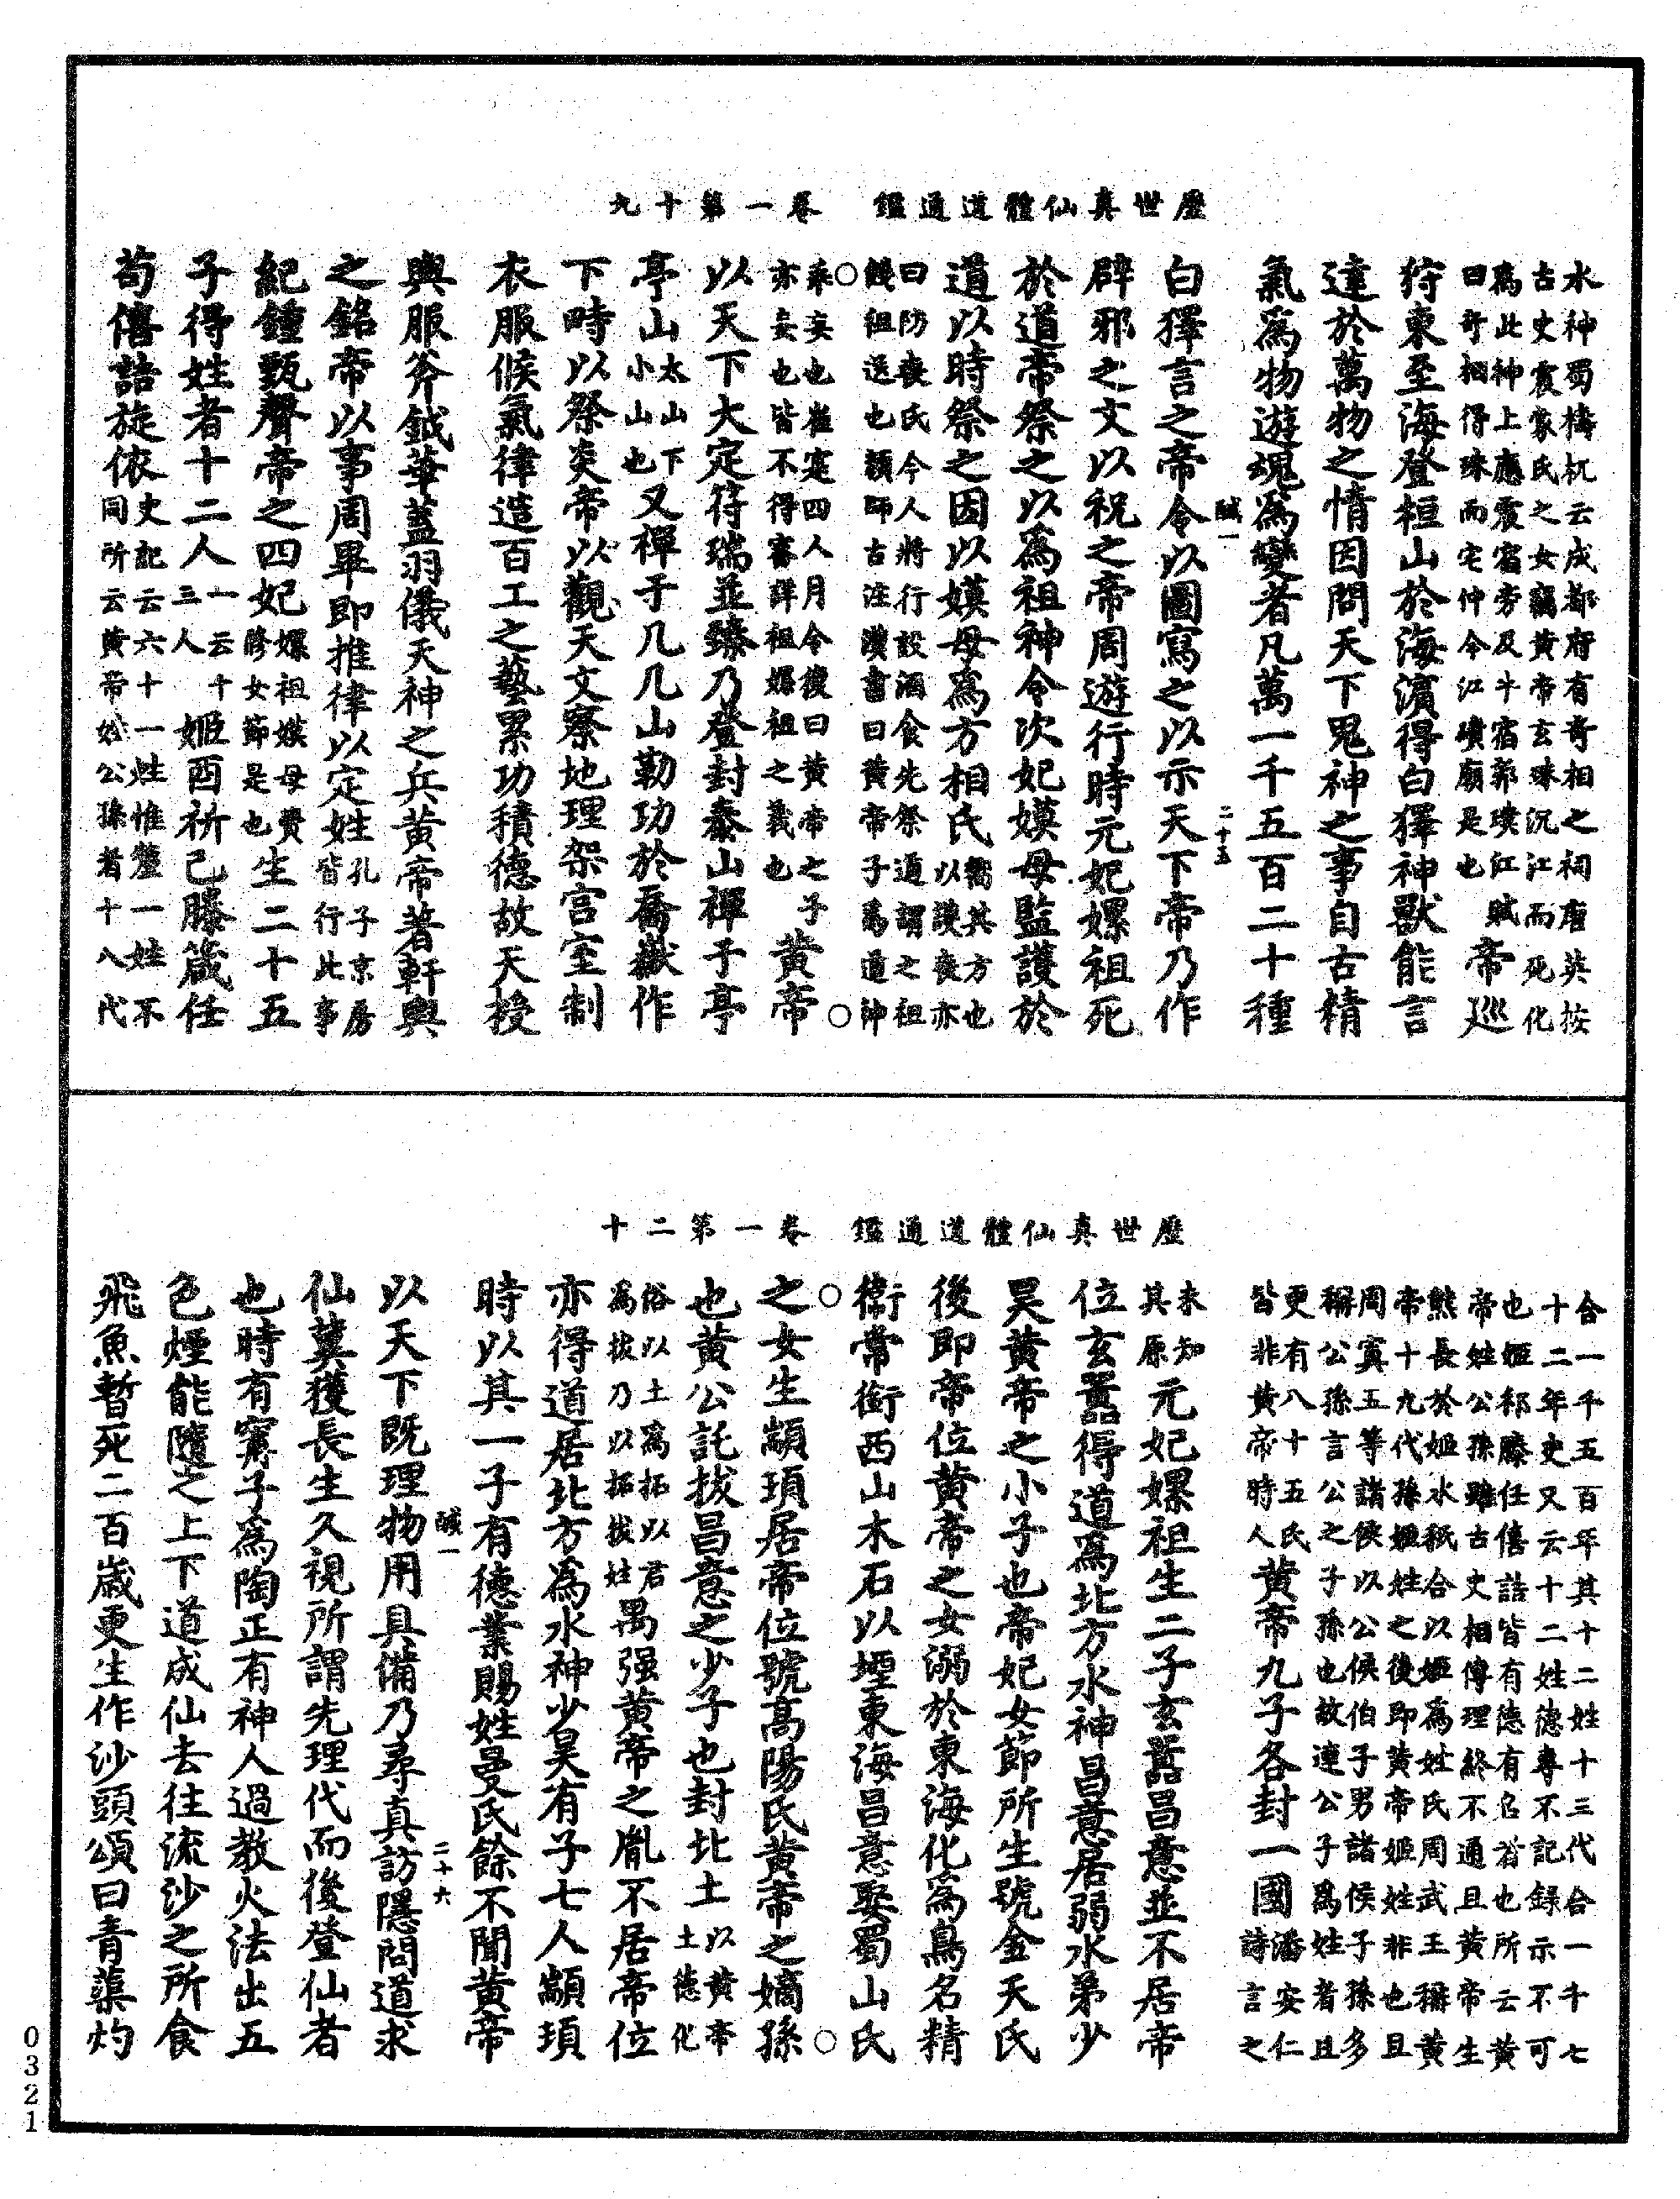 歷世真仙體道通鑑　卷一第十九
水神蜀檮杌云成都府有奇相之祠唐英按
古史震蒙氏之女竊黃帝玄珠沉江而死化
為此神上應震宿旁及牛宿郭璞江賦
曰奇相得珠而宅神今江瀆廟是也
帝巡
狩東至海登桓山於海濱得白獸神獸能言
達於萬物之情因問天下鬼神之事自古精
氣為物遊魂為變者凡萬一千五百二十種
鹹一
二十五
白澤言之帝令以圖寫之以示天下帝乃作
辟邪之文以祝之帝周遊行時元妃嫘祖死
於道帝祭之以為祖神令次妃嫫母監護於
道以時祭之因以嫫母為方相氏
嚮其方也
以護喪亦
曰防喪氏今人將行設酒食先祭道謂之祖
餞祖送也顏師古注漢書曰黃帝子為道神
乘妄也崔寔四人月令復曰黃帝之子
亦妄也皆不得審詳祖嫘祖之義也
黃帝
以天下大定符瑞並臻乃登封泰山禪于亭
亭山
太山下
小山也
又禪于几几山勒功於喬嶽作
下畤以祭炎帝以觀天文察地理架宮室制
衣服候氣律造百工之藝累功積德故天授
輿服斧鉞華蓋羽儀天神之兵黃帝著軒輿
之銘帝以事周畢即推律以定姓
孔子京房
皆行此事
紀鍾甄聲帝之四妃
嫘祖嫫母費
修女節是也
生二十五
子得姓者十二人
一云十
三人
姬酉祈己滕葴任
荀僖詰旋依
史記云六十一姓惟釐一姓不
同所云黃帝姓公孫者十八代
歷世真仙體道通鑑　卷一第二十
合一千五百年其十二姓十三代合一千七
十二年史又云十二姓德專不記録示不可
也姬祁滕任僖詰皆有德有名者也所云黃
帝姓公孫雖古史相傳理終不通且黃帝生
熊長於姬水秪合以姬為姓氏周武王稱黃
帝十九代孫姬姓之後即黃帝姬姓非也且
周寘五等諸侯以公侯伯子男諸侯子孫多
稱公孫言公之子孫也故連公子為姓者且
更有八十五氏
皆非黃帝時人
黃帝九子各封一國
潘安仁
詩言之
未知
其原
元妃嫘祖生二子玄囂昌意並不居帝
位玄囂得道為北方水神昌意居弱水弟少
昊黃帝之小子也帝妃女節所生號金天氏
後即帝位黃帝之女溺於東海化為鳥名精
衛常銜西山木石以堙東海昌意娶蜀山氏
之女生顓頊居帝位號高陽氏黃帝之嫡孫
也黃公託拔昌意之少子也封北土
以黃帝
土德化
俗以土為拓以君
為拔乃以拓拔姓
禺强黃帝之胤不居帝位
亦得道居北方為水神少昊有子七人顓頊
時以其一子有德業賜姓曼氏餘不聞黃帝
鹹一
二十六
以天下既理物用具備乃尋真訪隱問道求
仙冀獲長生久視所謂先理代而後登仙者
也時有寗子為陶正有神人過教火法出五
色煙能隨之上下道成仙去往流沙之所食
飛魚暫死二百歲更生作沙頭頌曰青蕖灼
0321